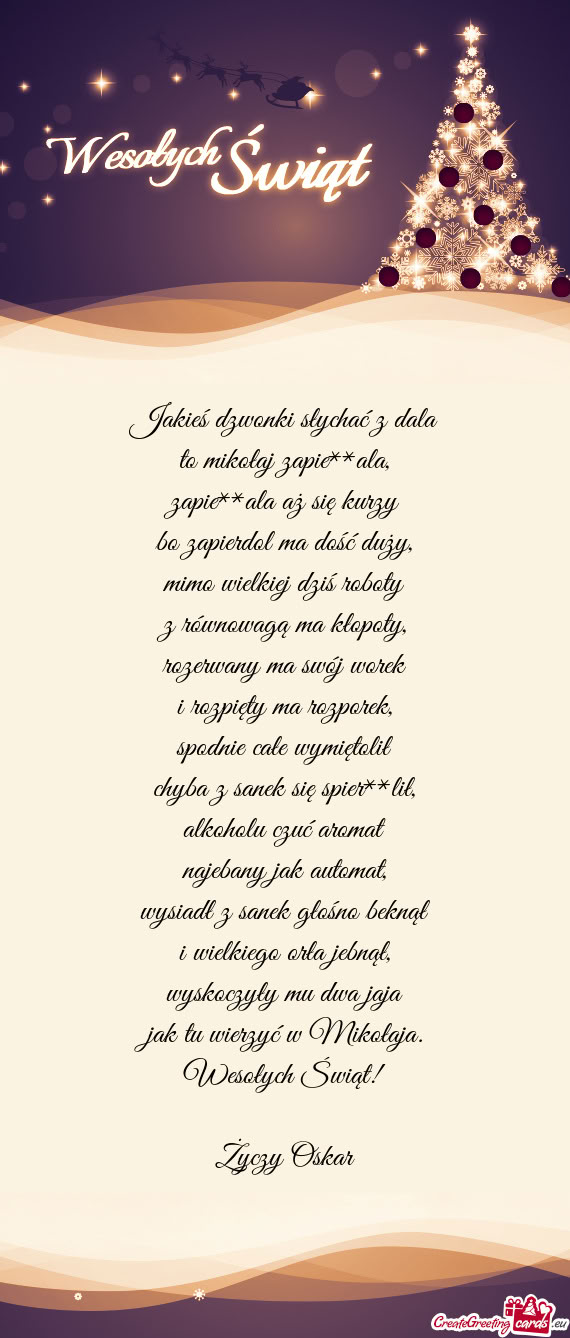 Wesołych Świąt
Jakieś dzwonki słychać z dala
to mikołaj zapie**ala,
zapie**ala aż się kurzy
bo zapierdol ma dość duży,
mimo wielkiej dziś roboty
z równowagą ma kłopoty,
rozerwany ma swój worek
i rozpięty ma rozporek,
spodnie całe wymiętolił
chyba z sanek się spier**lił,
alkoholu czuć aromat
najebany jak automat,
wysiadł z sanek głośno beknął
i wielkiego orła jebnął,
wyskoczyły mu dwa jaja
jak tu wierzyć w Mikołaja.
Wesołych Świąt!
Życzy Oskar
CreateGreetingcards.eu